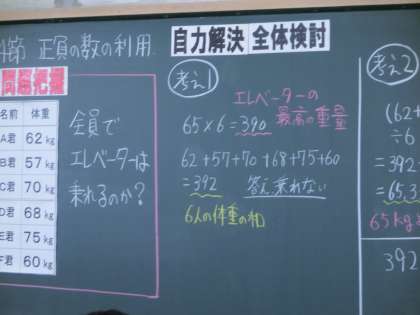 節 正負の数の利用
自力解決 全体検討
問題把握
名前 体重
A君 62kg
B君 57kg
C君 70kg
D君 68kg
E君 75kg
F君 60kg
全員で
エレベーターは
乗れるのか?
考え1
エレベーターの
最高の重量
65×6=390
62+57+70+68+75+60
=392 答え 乗れない
6人の体重の和
考え2
(62+
÷6
=392
=65.3
65kg
392